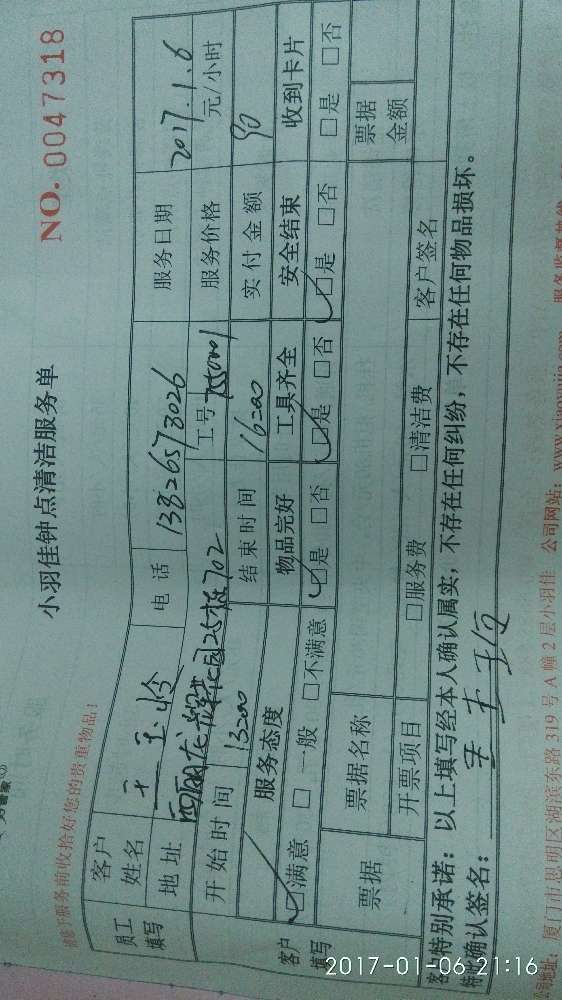 小羽佳钟点清洁服务单
NO. 0047318
请您于服务前收拾好您的贵重物品！
员工填写
客户姓名
电话 13826573026
服务日期 2017.1.6
地址 西丽龙辉花园25栋702
工号
服务价格 元/小时
开始时间 13:00
结束时间 16:00
实付金额 90
客户填写
服务态度 物品完好 工具齐全 安全结束 收到卡片
☑满意 □一般 □不满意 ☑是 □否 ☑是 □否 ☑是 □否 □是 □否
票据 票据名称 票据金额
开票项目 □服务费 □清洁费 客户签名
客户特别承诺：以上填写经本人确认属实，不存在任何纠纷，不存在任何物品损坏。
特此确认签名：
公司地址：厦门市思明区湖滨东路319号A幢2层小羽佳 公司网站：www.xiaoyujia.com 服务监督热线
2017-01-06 21:16